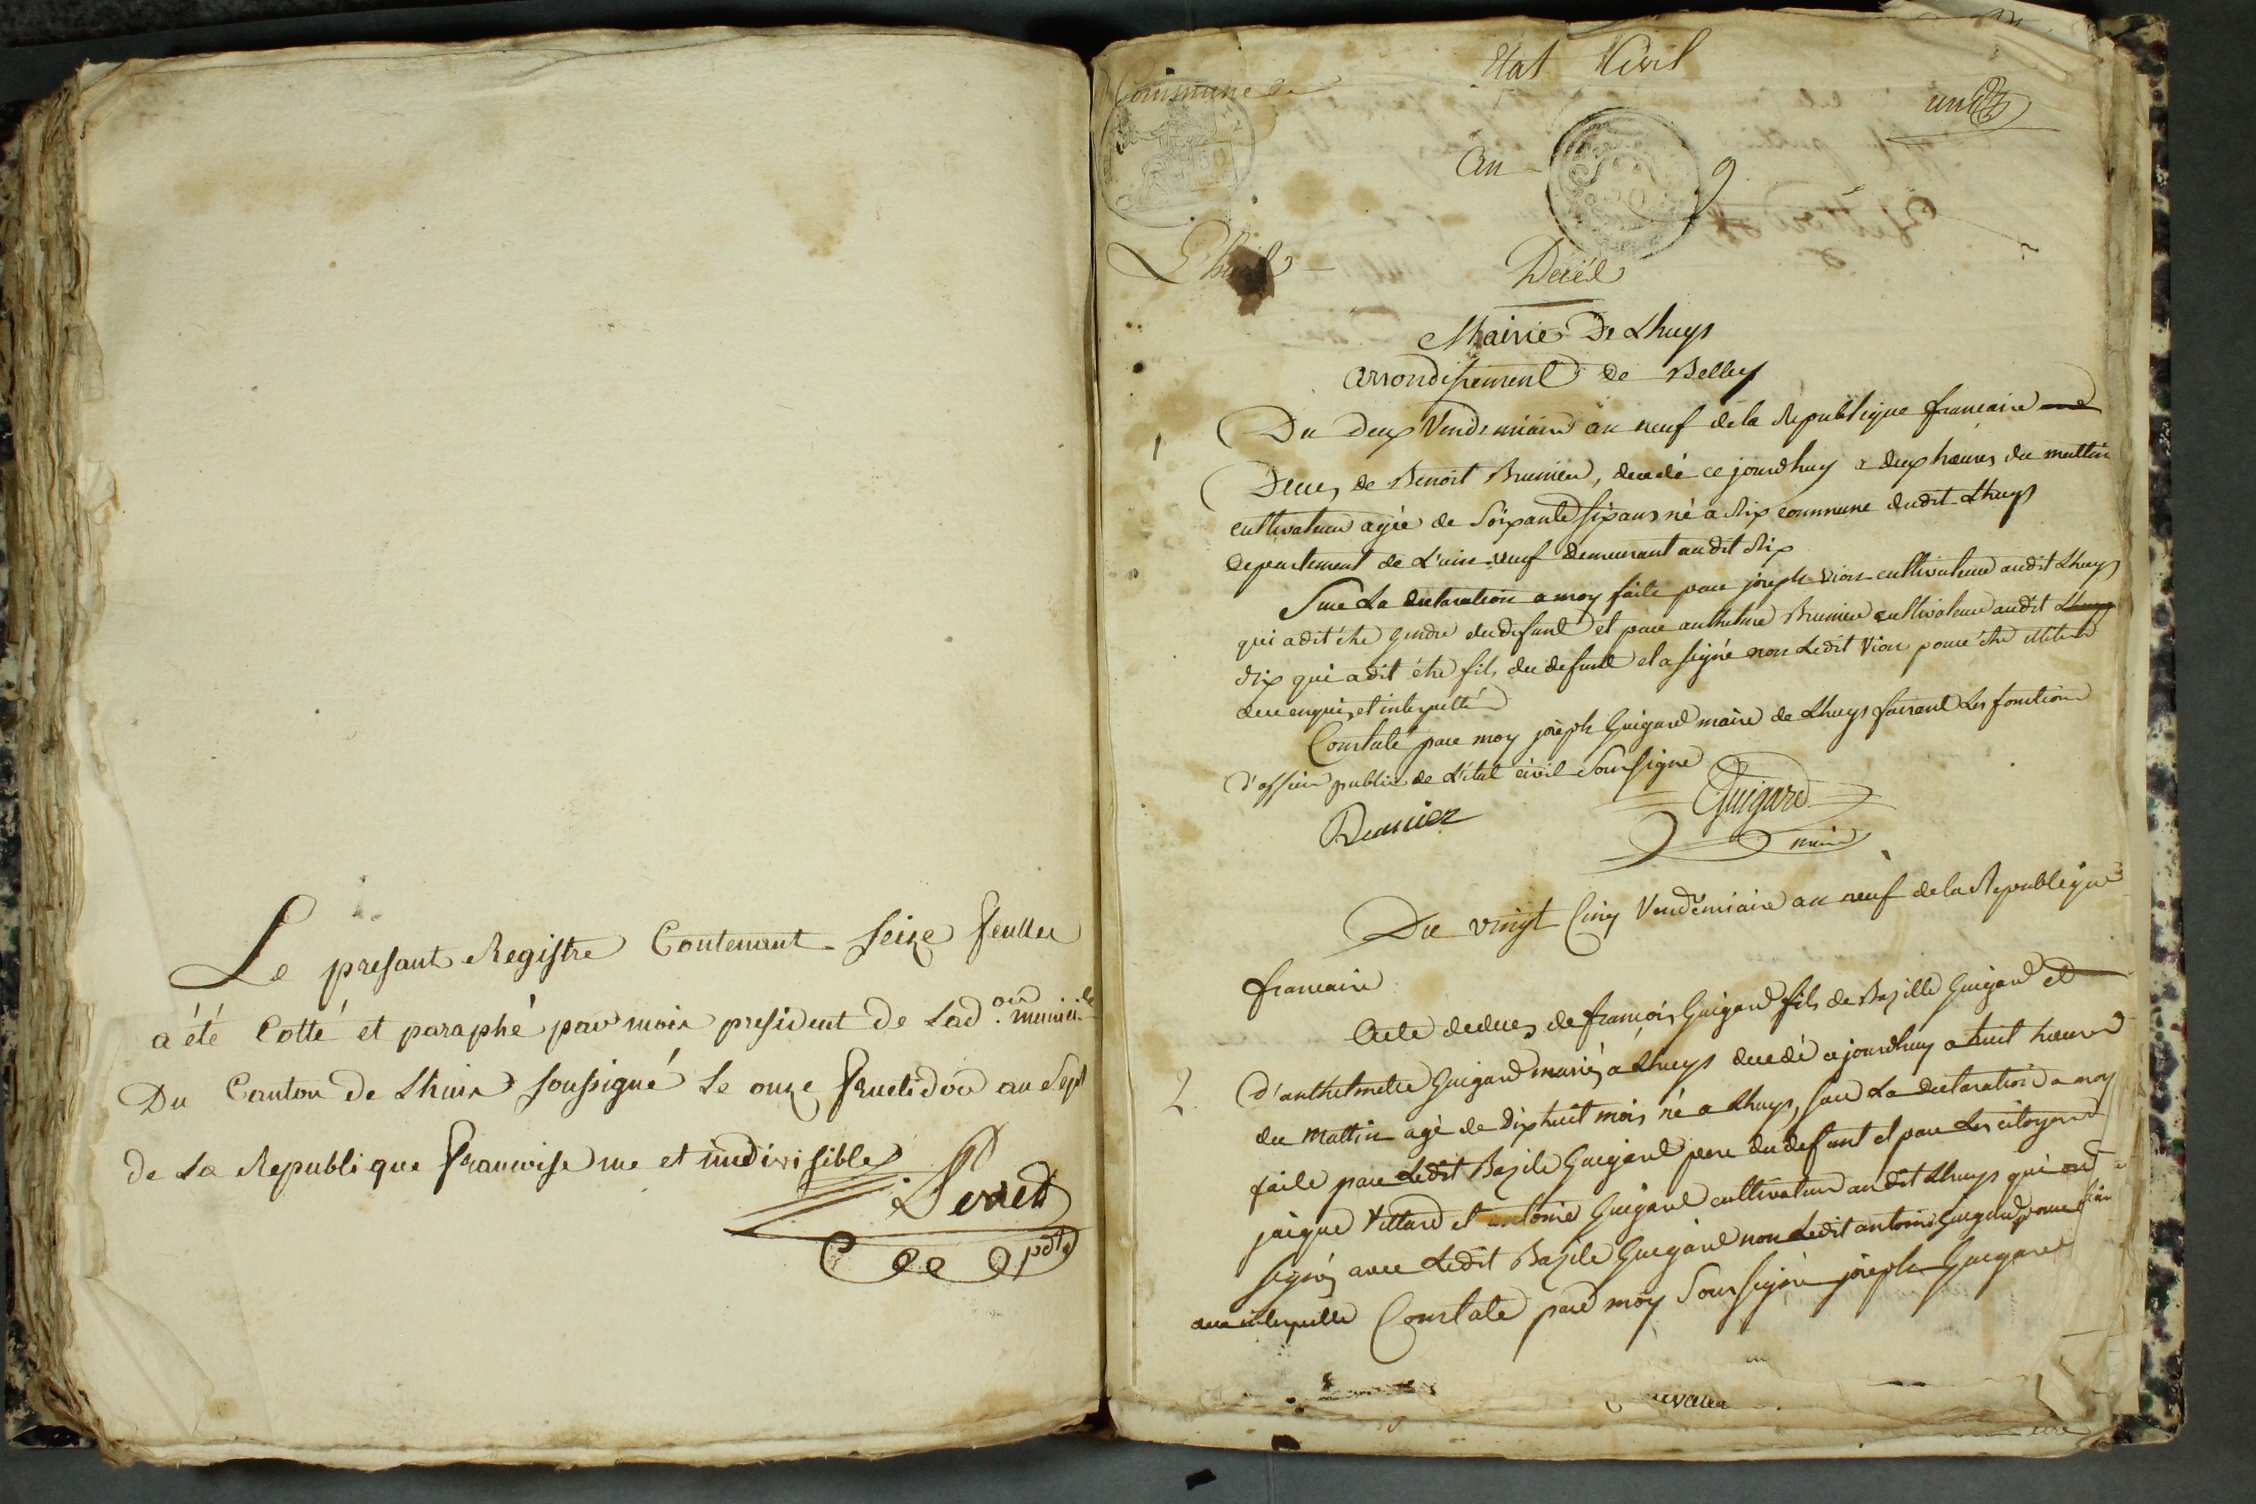 Le presant Registre Contenant Seize feulles
a été Cotté et paraphé par moix president de Lad.on municile
Du Canton de Lhuix soussigné Le onze fructidor an Sept
de La Republique francoise une et indivisible
pdt
Etat Civil
Commune de
un
An 9
Lhuis
Décès
Mairie De Lhuys
arrondissement de Belley
1 Du Deux Vendemiaire an neuf de la Republique francaise
Deces de Benoit Brunier, decedé ce jourdhuy a deux heures du mattin
cultivateur agée de Soixante six ans né a Rix commune dudit Lhuys
departement de L'ain veuf demeurant audit Rix
Sur La declaration a moy faite par joseph Vion cultivateur audit Lhuys
qui a dit être gendre du defunt et par anthelme Brunier cultivateur audit Lhuys
Rix qui a dit être fils du defunt et a signé non Ledit Vion pour être illiteré
de ce enquis et interpellé
Constaté par moy joseph Guigard maire de Lhuys faisant Les fonctions
d'officier public de L'état civil Soussigné
Brunier
Guigard
maire
Du vingt Cinq Vendémiaire an neuf de la Republique
francaise
2. Acte de deces de françois Guigard fils de Bazille Guigard et
d'anthelmette Guigard mariés a Lhuys decedé ce jourdhuy a huit heures
du Mattin agé de Dixhuit mois né a Lhuys, sur La declaration a moy
faite par Ledit Bazile Guigard pere du defunt et par Les citoyens
jacque Villard et antoine Guigard cultivateur audit Lhuys qui ont
signés avec Ledit Bazile Guigard non Ledit antoine Guigard pour
de ce interpellé Constaté par moy Soussigné joseph Guigard